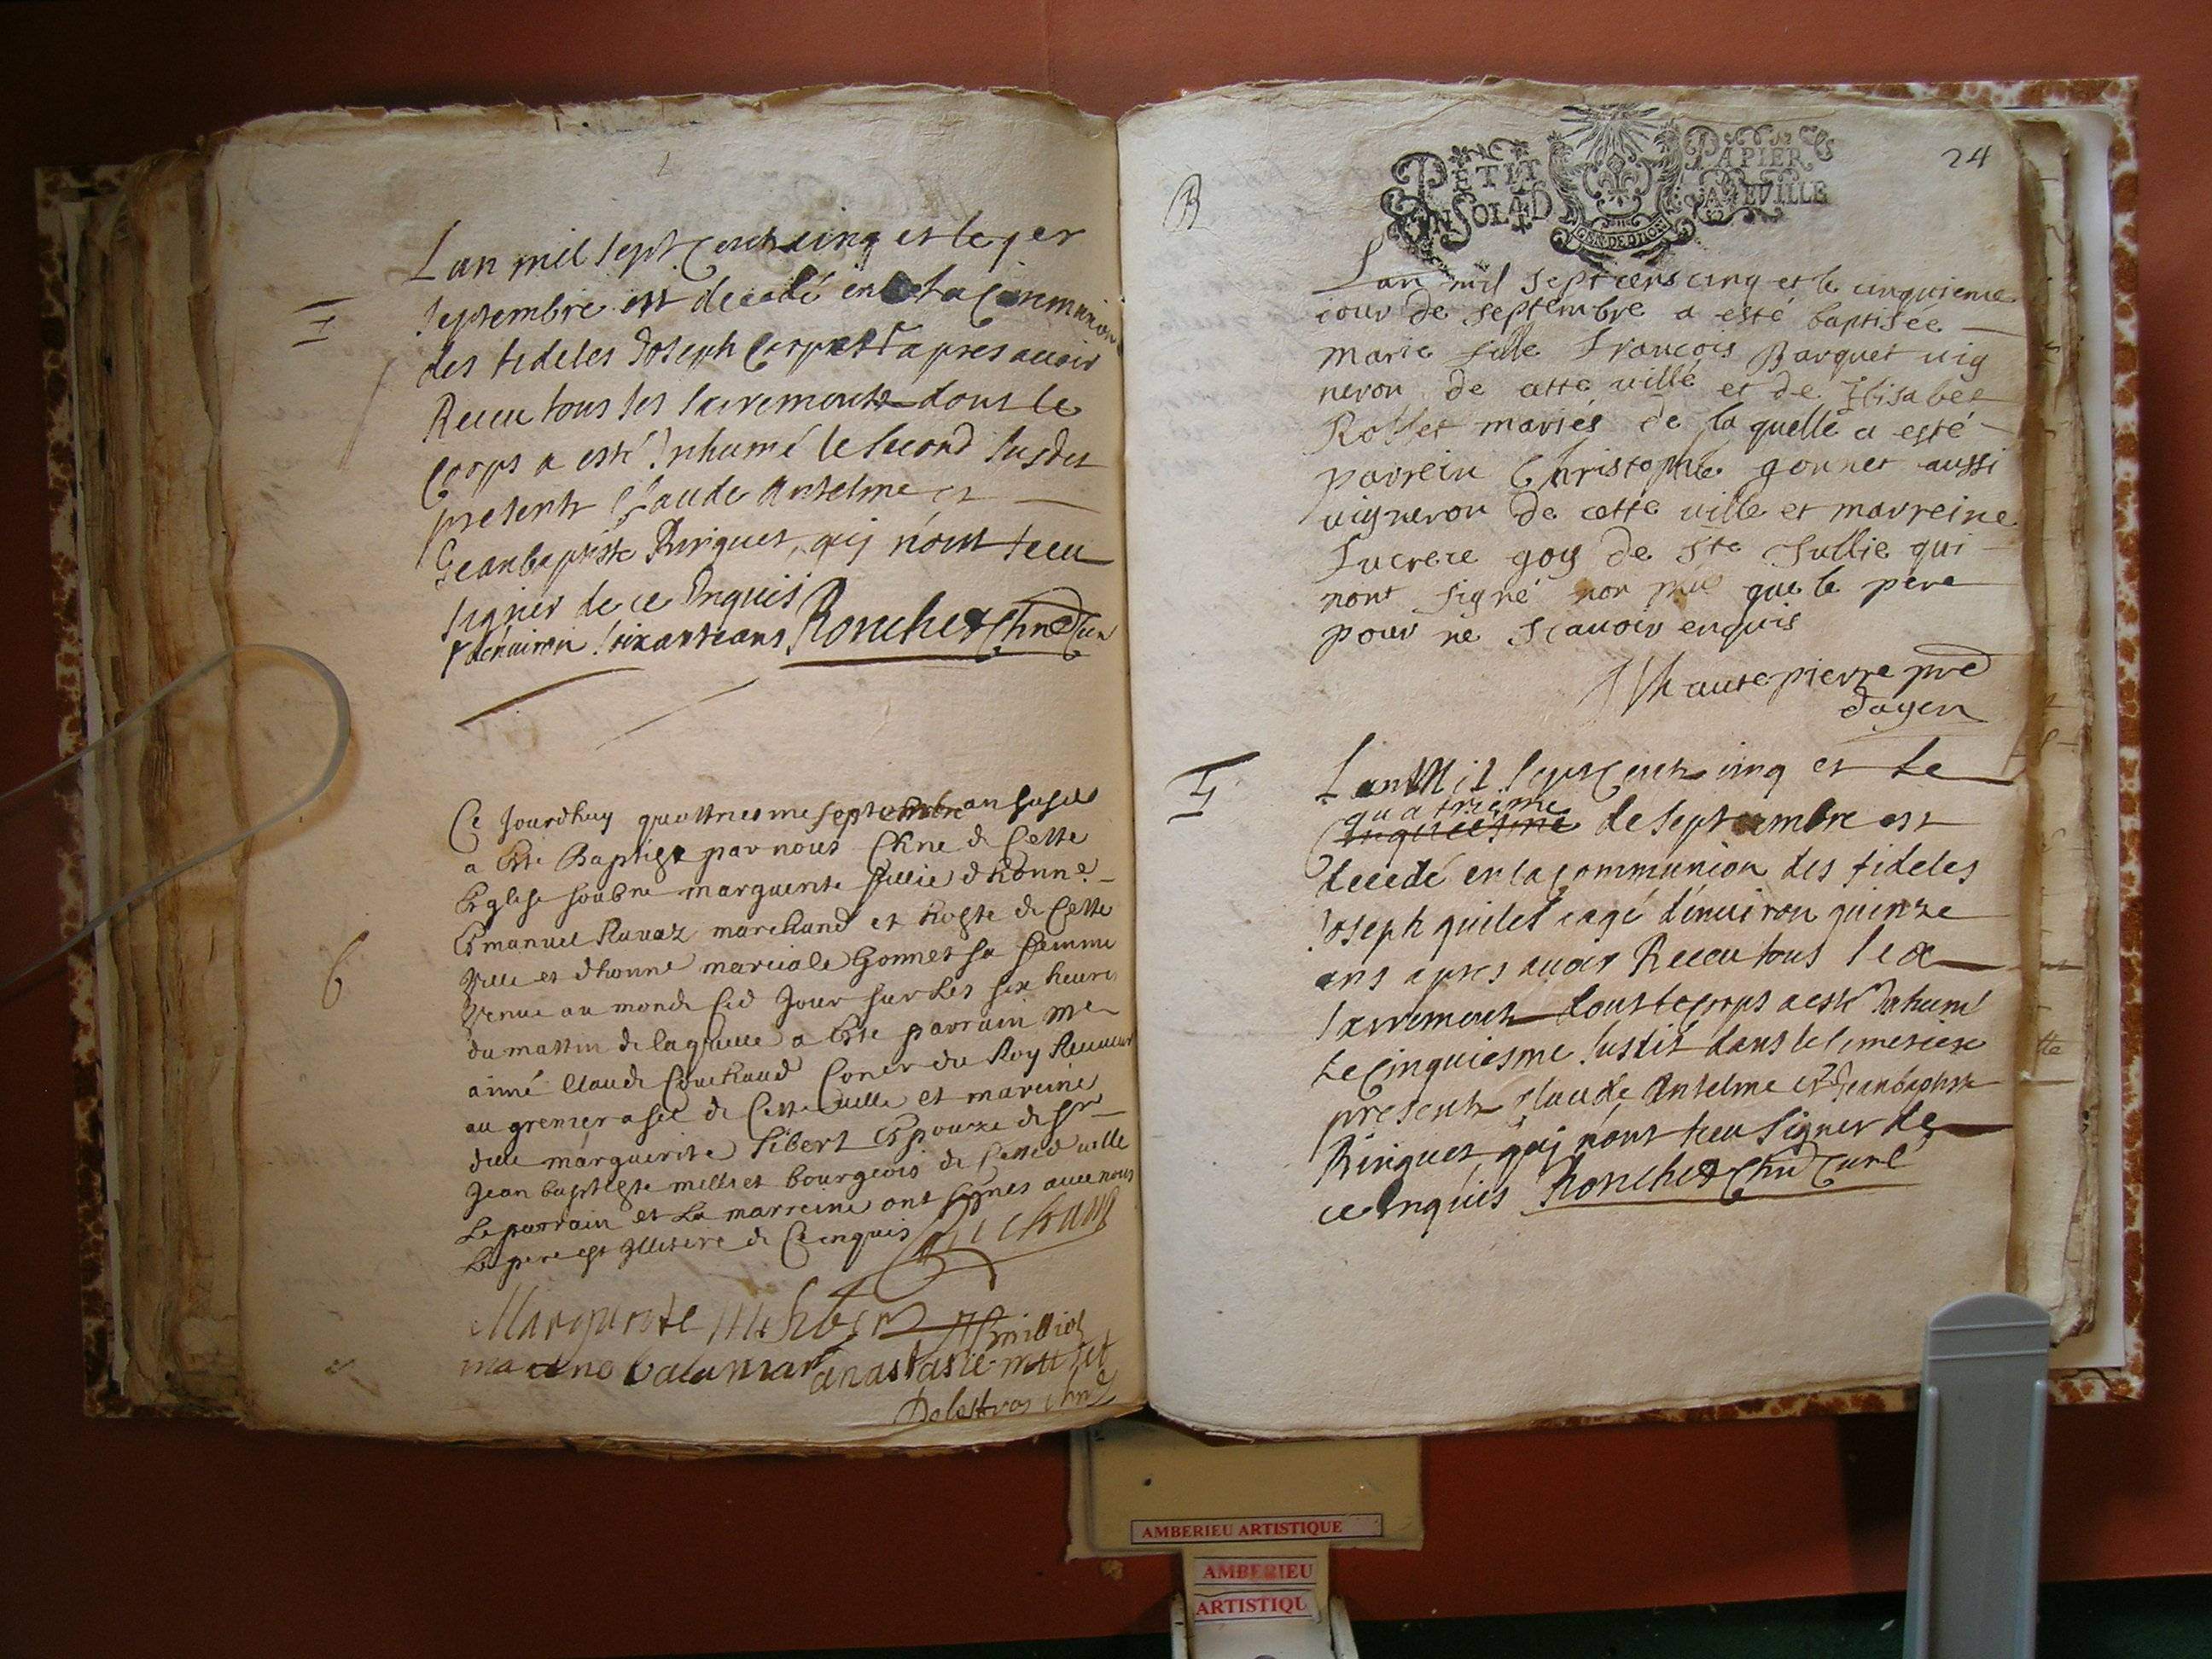 Lan mil sept Cent cinq et le 1er
septembre est decedé en la Communion
des fideles Joseph après avoir
Receu tous les sacrements dont le
Corps a esté Inhumé le second susdit
presents Claude Anselme et
Jeanbaptiste Ringuet, quj nont sceu
signer de ce Enquis Ronchet Chne Cure
âgé denuiron soixante ans
Ce Jourdhuy quattriesme septembre an susd
a Esté Baptisé par nous Chne de Cette
Eglise soubné marguerite fillie dhonn
Emanuel Ravaz marchand et hoste de Cette
Ville et dhonne marciale Gonnet sa femme
Venue au monde Ced Jour sur Les six heures
du mattin de laquelle a Esté parrain me
aimé Claude Couchaud Coner du Roy Receueur
au grenier a sel de Cette ville et mareine
dlle marguerite Sibert Espouze de sr
Jean baptiste milliet bourgeois de Cetted ville
Le parrain et La marreine ont signés auec nous
Le pere est Illiteré de Ce enquis
Marguerite
anastasie milliet
24
B
PETIT PAPIER
Lan mil sept cens cinq et le cinquieme
iour de septembre a esté baptisée
marie fille François Barquet uig
neron de cette ville et de Elisabet
Rollet mariés de la quelle a esté
parrein Christophle gonnet aussi
uigneron de cette ville et marreine
Lucrece goy de ste Jullie qui
nont signé non plus que le pere
pour ne scauoir enquis
hautepierre pre
doyen
Lan Mil sept Cent cinq et le
quatrieme
Cinquiesme de septembre est
decedé en la Communion des fideles
Joseph quilet eagé denuiron quinze
ans apres auoir Receu tous les
sacrements dont le Corps a esté Inhumé
le Cinquiesme susdit dans le Cimetiere
presents Claude Anselme et Jeanbaptiste
Ringuet quj nont sceu signer de
ce Enquis Ronchet Chne Curé
AMBERIEU ARTISTIQUE
AMBERIEU
ARTISTIQU